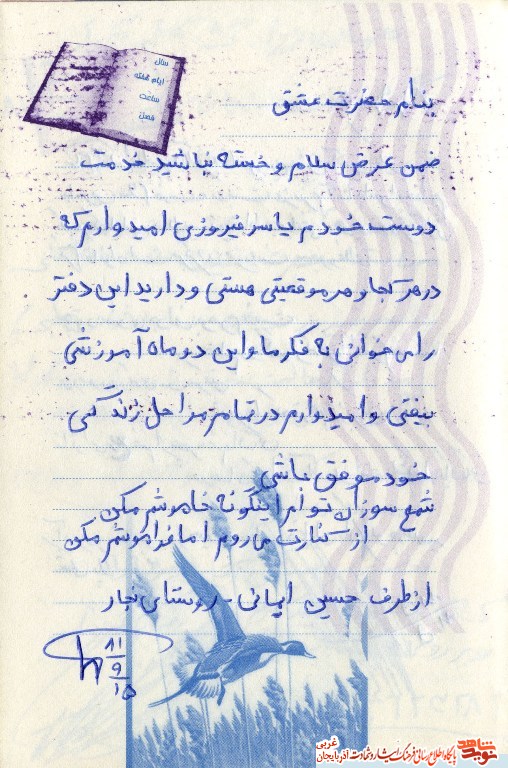 سال
ایام هفته
ساعت
فصل
بنام حضرت عشق
ضمن عرض سلام و خسته نباشید خدمت
دوست خودم یاسر فیروزی امیدوارم که
در هر کجا و هر موقعیتی هستی و دارید این دفتر
را می خوانی به فکر ما و این دو ماه آموزشی
بیفتی و امیدوارم در تمام مراحل زندگی
خود موفق باشی
شمع سوزان توام اینگونه خاموشم مکن
از کنارت می روم اما فراموشم مکن
از طرف حسین ایمانی - روستای نجار
۸۱
۹
۱۵
نوید شاهد
پایگاه اطلاع رسانی فرهنگ ایثار و شهادت آذربایجان غربی